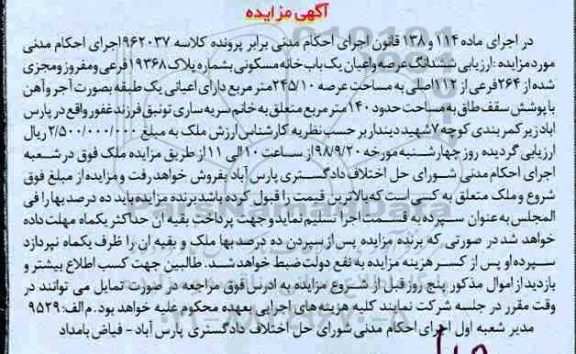 آگهی مزایده
در اجرای ماده ۱۱۴ و ۱۳۸ قانون اجرای احکام مدنی برابر پرونده کلاسه ۹۶۲۰۳۷ اجرای احکام مدنی
مورد مزایده : ارزیابی ششدانگ عرصه واعیان یک باب خانه مسکونی بشماره پلاک ۱۹۳۶۸ فرعی و مفروز ومجزی
شده از ۲۶۴ فرعی از ۱۱۲ اصلی به مساحت عرصه ۲۴۵/۱۰ متر مربع دارای اعیانی یک طبقه بصورت آجر و آهن
با پوشش سقف طاق به مساحت حدود ۱۴۰ متر مربع متعلق به خانم سریه ساری توننبق فرزند غفور واقع در پارس
اباد زیر کمر بندی کوچه ۷ شهید دیندار بر حسب نظریه کارشناس ارزش ملک به مبلغ ۲/۵۰۰/۰۰۰/۰۰۰ ریال
ارزیابی گردیده روز چهارشنبه مورخه ۹۸/۹/۲۰ از ساعت ۱۰ الی ۱۱ از طریق مزایده ملک فوق در شعبه
اجرای احکام مدنی شورای حل اختلاف دادگستری پارس آباد بفروش خواهد رفت و مزایده از مبلغ فوق
شروع و ملک متعلق به کسی است که بالاترین قیمت را قبول کرده باشد برنده مزایده باید ده درصد بها را فی
المجلس به عنوان سپرده به قسمت اجرا تسلیم نماید و جهت پرداخت بقیه ان حداکثر یکماه مهلت داده
خواهد شد در صورتی که برنده مزایده پس از سپردن ده درصد بها ملک و بقیه ان را ظرف یکماه نپردازد
سپرده او پس از کسر هزینه مزایده به نفع دولت ضبط خواهد شد. طالبین جهت کسب اطلاع بیشتر و
بازدید از اموال مذکور پنج روز قبل از شروع مزایده به ادرس فوق مراجعه در صورت تمایل می توانند در
وقت مقرر در جلسه شرکت نمایند کلیه هزینه های اجرایی بعهده محکوم علیه خواهد بود. م الف: ۹۵۲۹
مدیر شعبه اول اجرای احکام مدنی شورای حل اختلاف دادگستری پارس آباد - فیاض بامداد